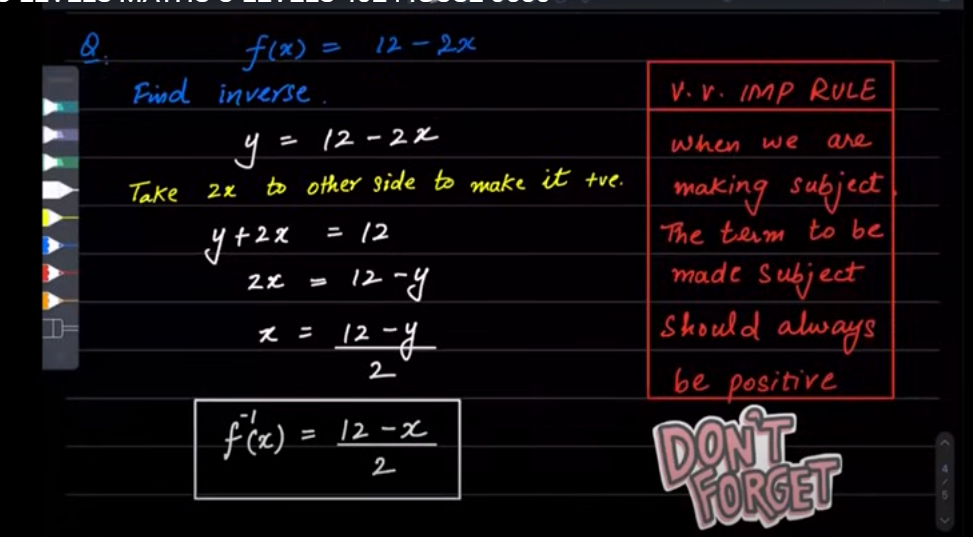 Q. f(x) = 12 - 2x
Find inverse.
y = 12 - 2x
Take 2x to other side to make it +ve.
y + 2x = 12
2x = 12 - y
x = \frac{12 - y}{2}
f^{-1}(x) = \frac{12 - x}{2}
V. V. IMP RULE
When we are
making subject.
The term to be
made subject
should always
be positive
DON'T
FORGET
4
/
5